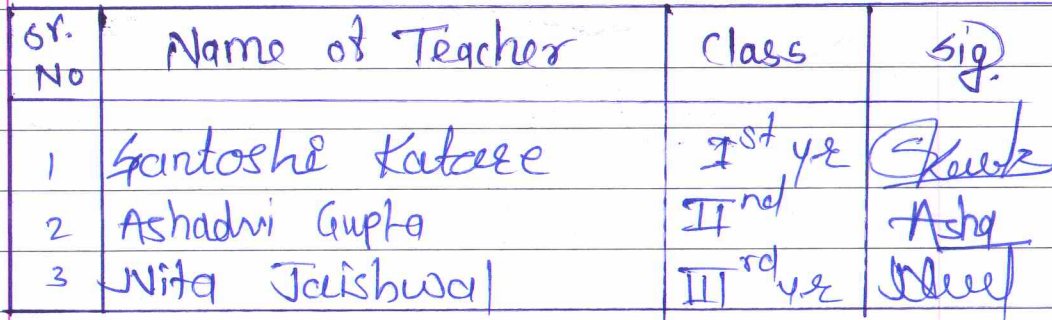 Sr. No Name of Teacher Class Sig.
1 Santoshi Katare Ist yr
2 Ashadvi Gupta IInd Asha
3 Nita Jaishwal IIIrd yr